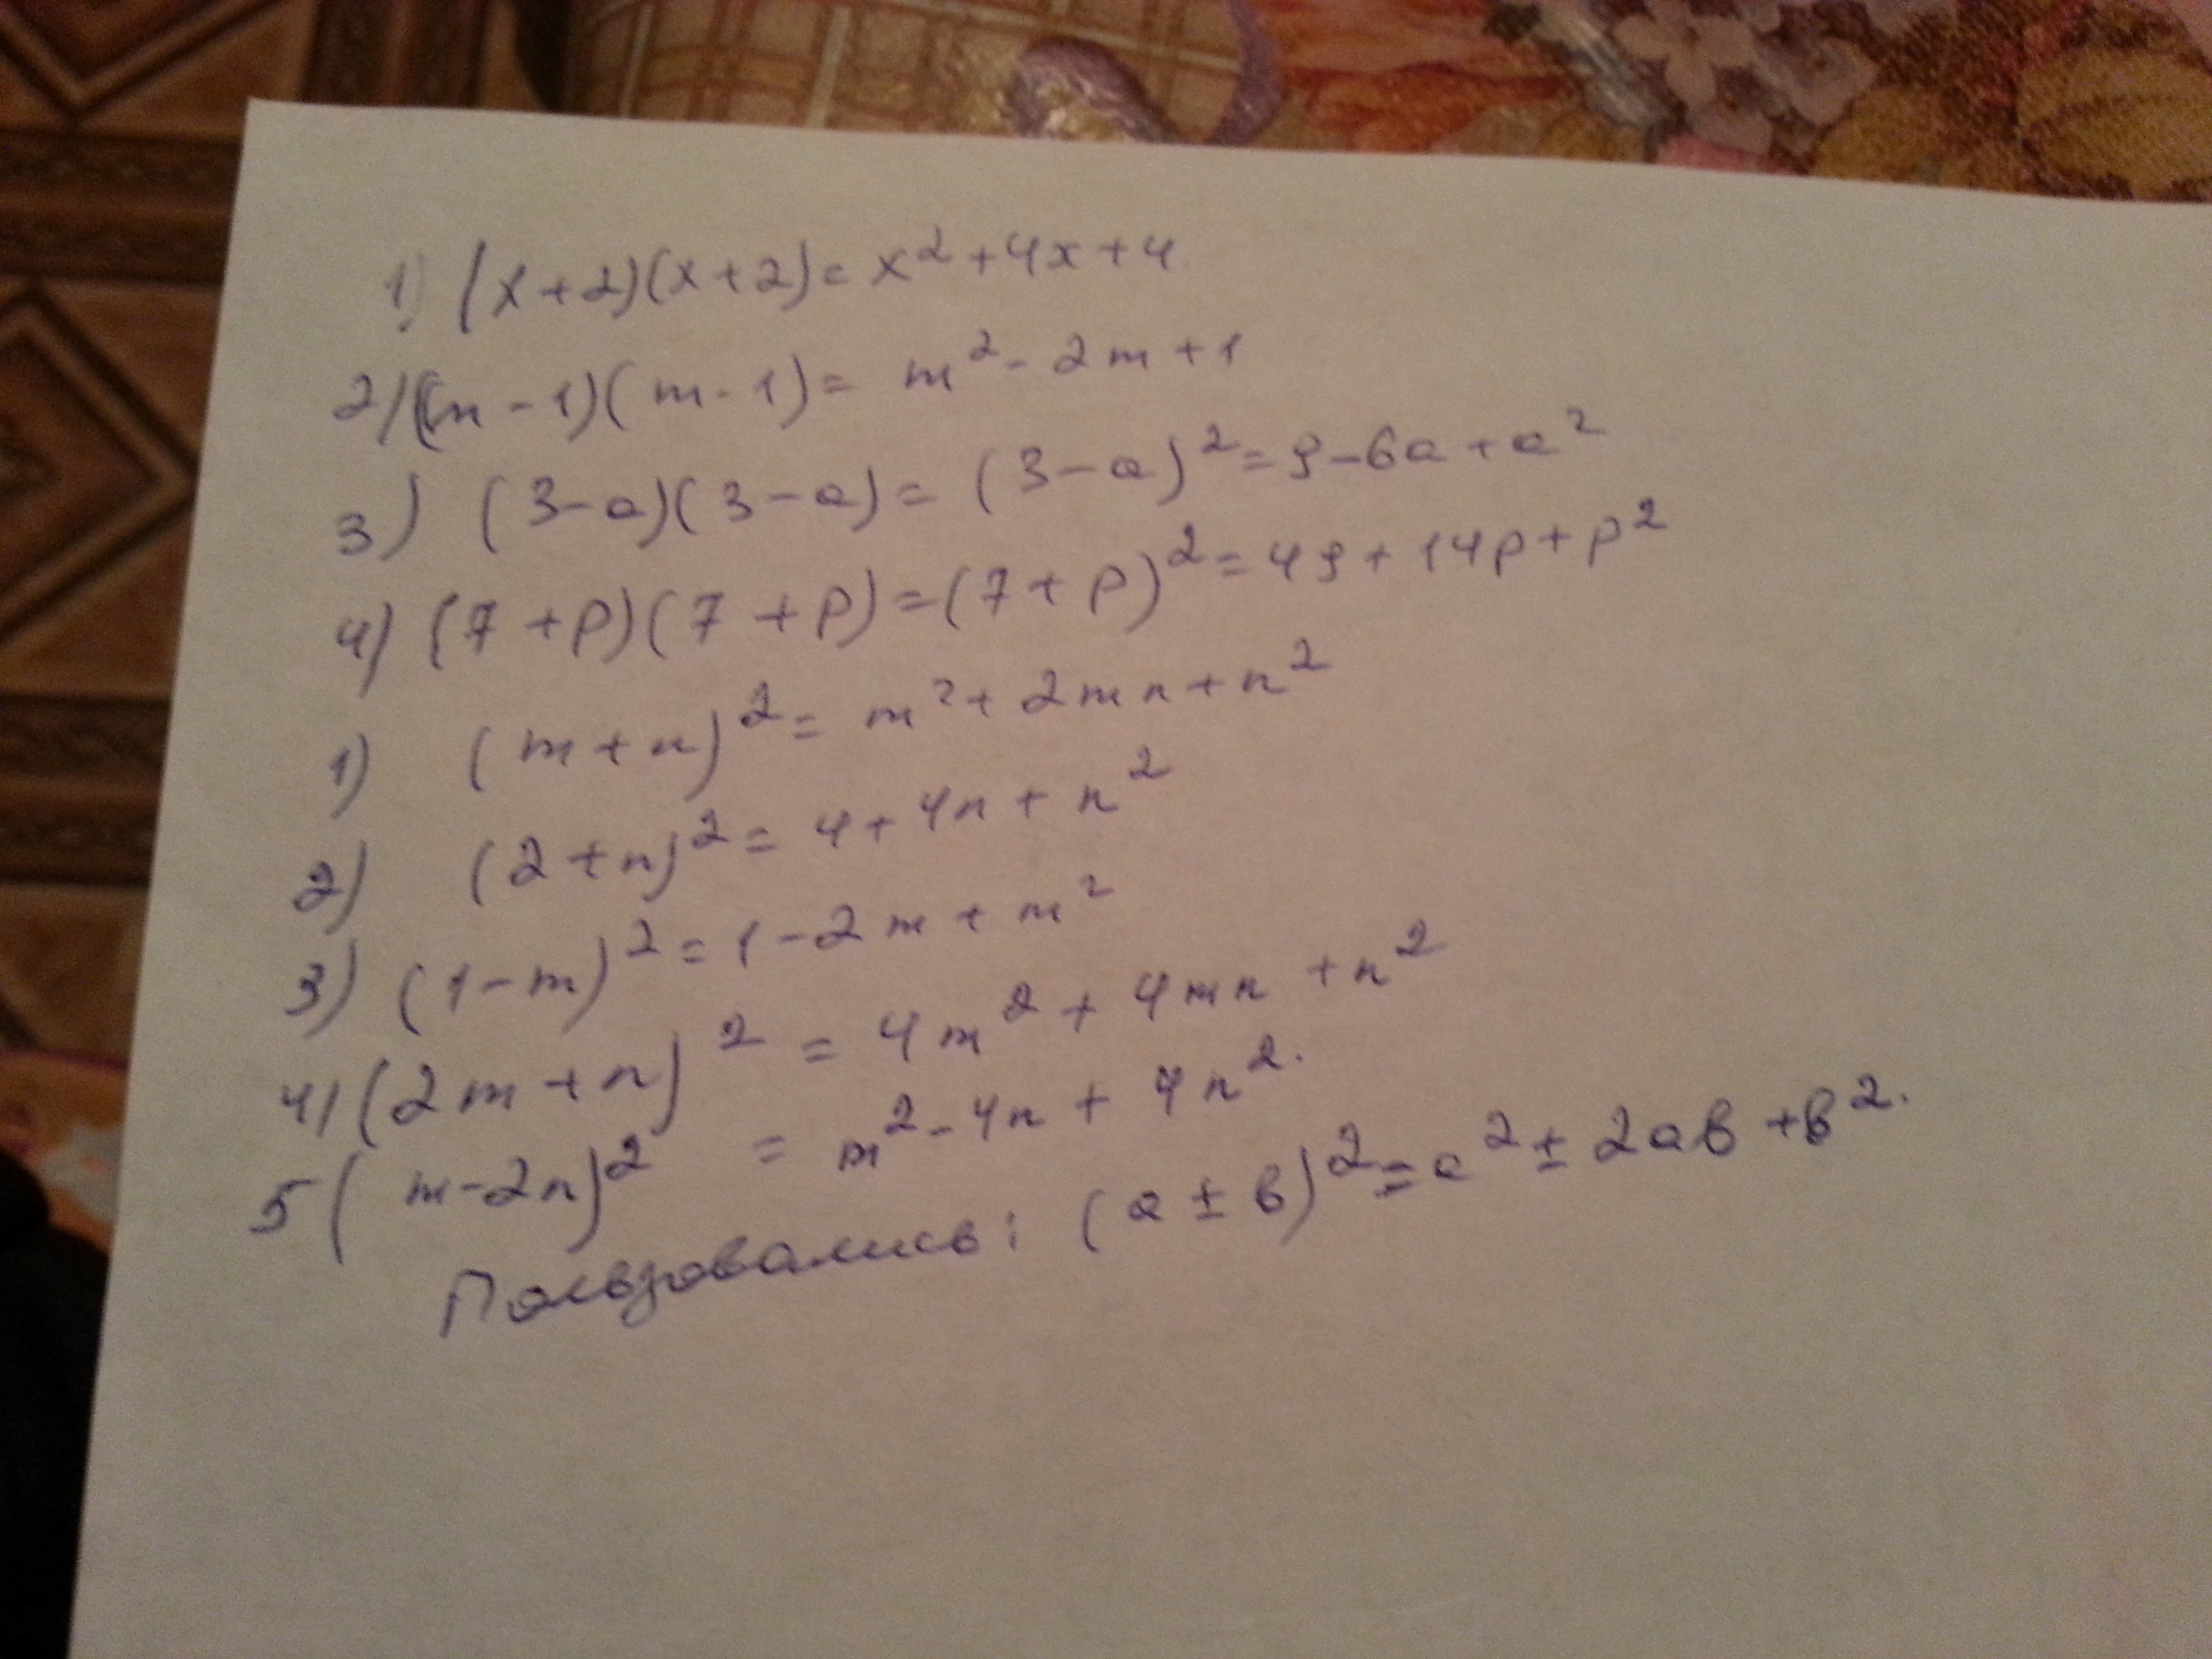 1) (x+2)(x+2)= x²+4x+4
2) (m-1)(m-1)= m²-2m+1
3) (3-a)(3-a)= (3-a)²=9-6a+a²
4) (7+p)(7+p)=(7+p)²=49+14p+p²
1) (m+n)²= m²+2mn+n²
2) (2+n)²=4+4n+n²
3) (1-m)²=1-2m+m²
4) (2m+n)²=4m²+4mn+n²
5 (m-2n)² = m²-4n+4n².
Пользовались: (a±в)²=a²±2aв+в².